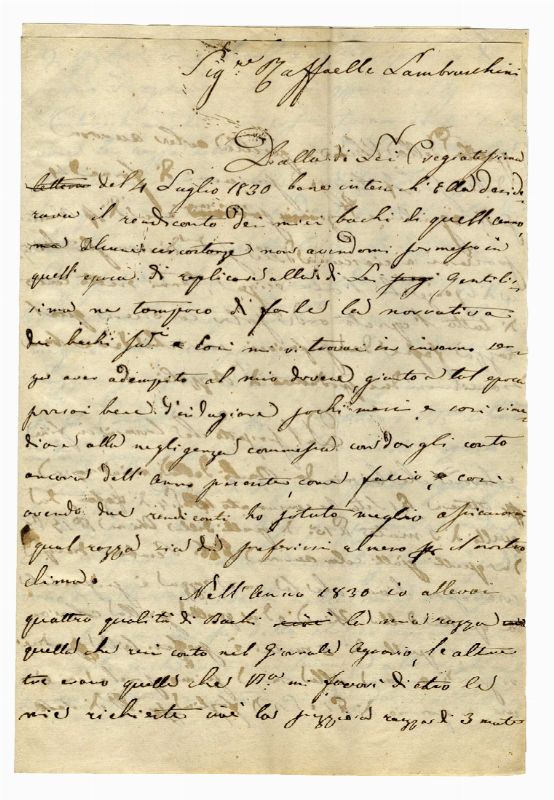 Sig.re Raffaelle Lambruschini
Dalla di Lei Pregiatissima
lettera del 4 Luglio 1830 bene intesi ch' Ella deside
rava il rendiconto dei miei bachi di quell'anno,
ma alcune circostanze non avendomi permesso in
quell'epoca di replicare alla di Lei Gentilis
sima ne tampoco di farle la narrativa
dei bachi e così mi vi trovai in inverno sen
za aver adempito al mio dovere, giunto a tal epoca
pensai bene d'indugiare pochi mesi e così rime
diare alla negligenza commessa con dargli conto
ancora dell'Anno presente, come faccio, e così
avendo due rendiconti ho potuto meglio
qual razza sia da preferirsi almeno per il nostro
clima.
Nell'Anno 1830 io allevai
quattro qualità di Bachi cioè la mia razza
quella che resi conto nel Giornale Agrario, le altre
tre erano quelle che V.a mi favorì dietro le
mie richieste cioè la razza di 3 mute